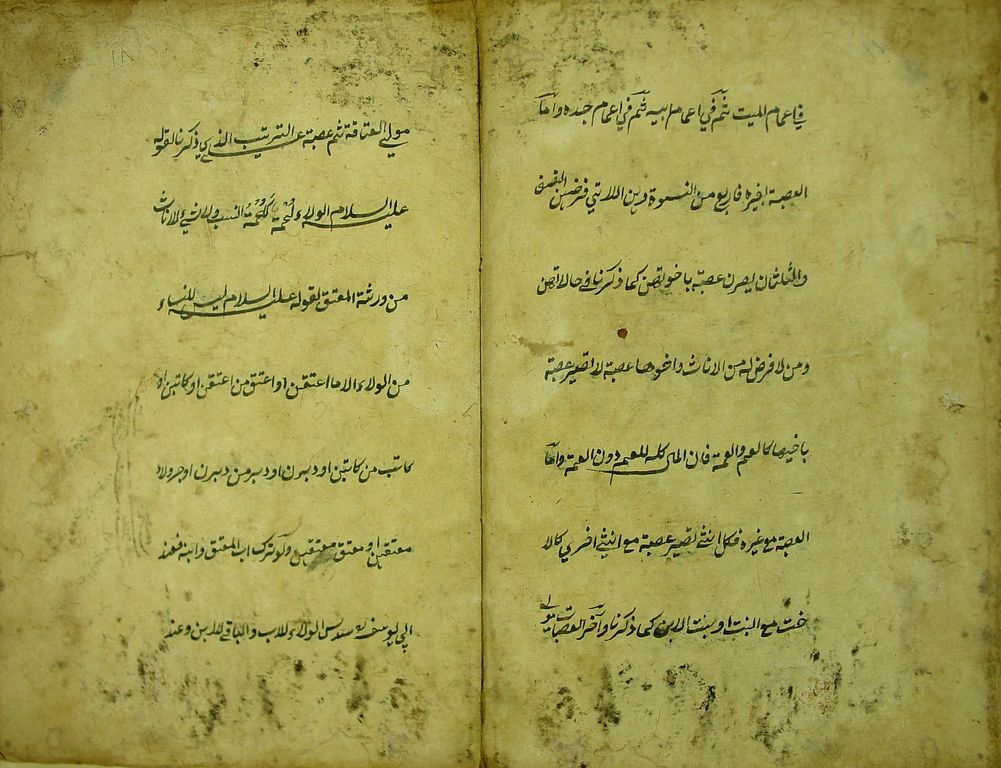 في اعمام الميت ثم في اعمام ابيه ثم في اعمام جده واما
العصبة بغيره فاربع من النسوة وهن اللاتي فرضهن النصف
والثلثان يصرن عصبة باخوتهن كما ذكرنا في حالاتهن
ومن لا فرض له من الاناث واخوها عصبة لا تصير عصبة
باخيها كالعم والعمة فان المال كله للعم دون العمة واما
العصبة مع غيره فكل انثى تصير عصبة مع انثى اخرى كالا
خت مع البنت او بنت الابن كما ذكرنا وآخر العصبات مولى
مولي العتاقة ثم عصبة على الترتيب الذي ذكرنا لقوله
عليه السلام الولاء لحمة كلحمة النسب ولا شيء للاناث
من ورثة المعتق لقوله عليه السلام ليس للنساء
من الولاء الا ما اعتقن او اعتق من اعتقن او كاتبن او
كاتب من كاتبن او دبرن او دبر من دبرن او جر ولاء
معتقهن او معتق معتقهن ولو ترك اب المعتق وابنه فعند
ابي يوسف سدس الولاء للاب والباقي للابن وعند
١٨